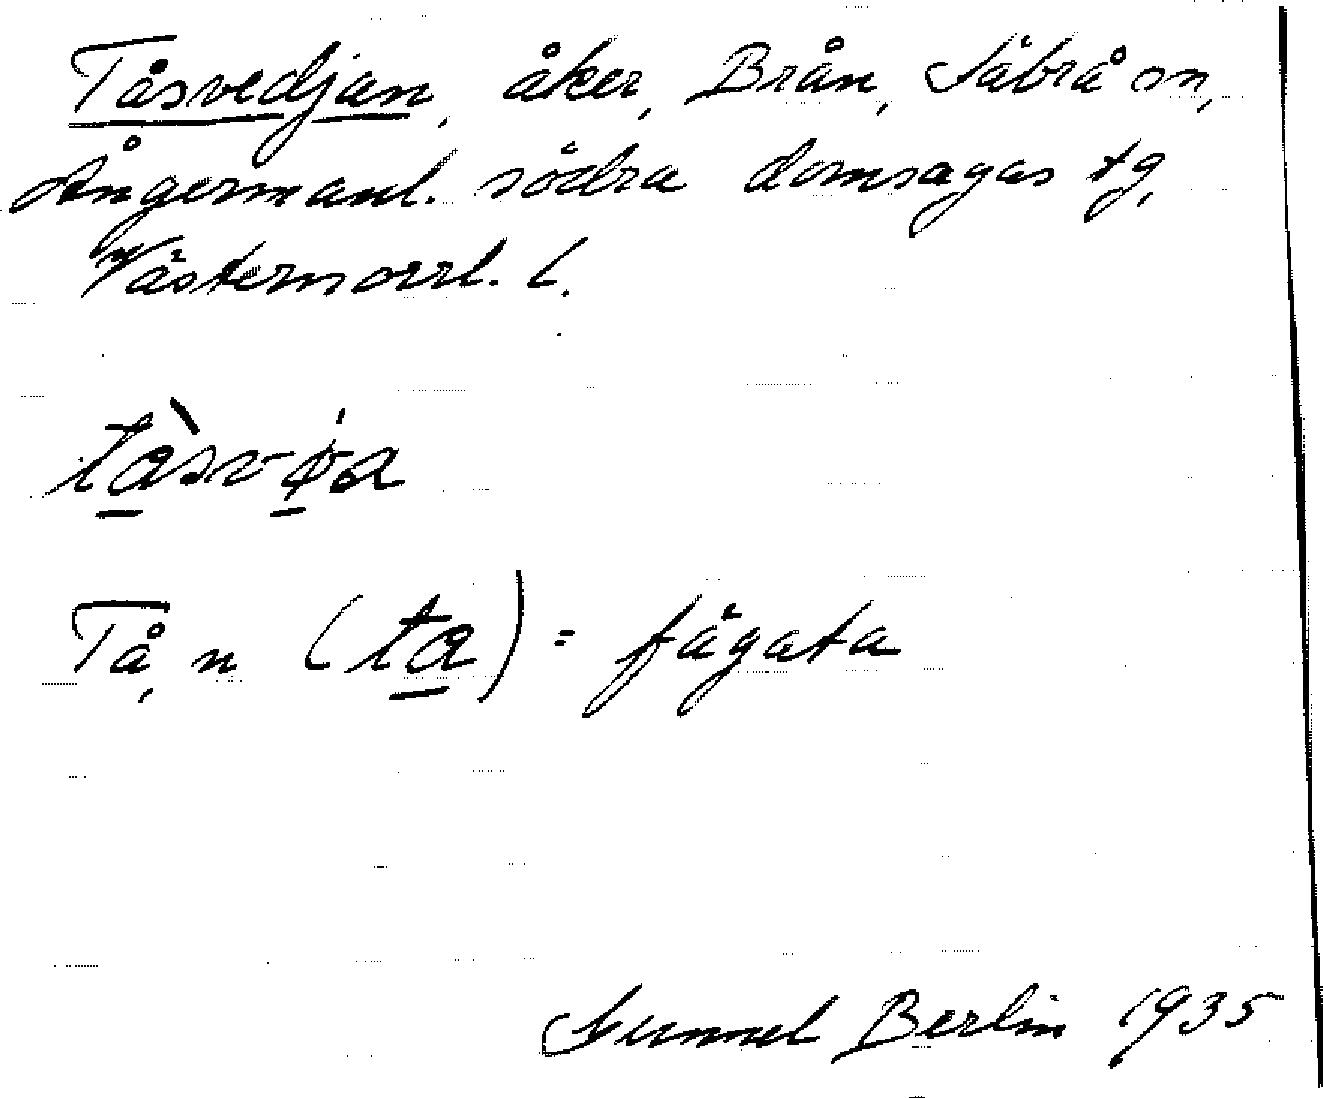 Tåsvedjan, åker, Brån, Säbrå sn,
Ångermanl. södra domsagas tg,
Västernorrl. l.
tàsvǿa
Tå, n (ta) = fägata
Gunnel Berlin 1935